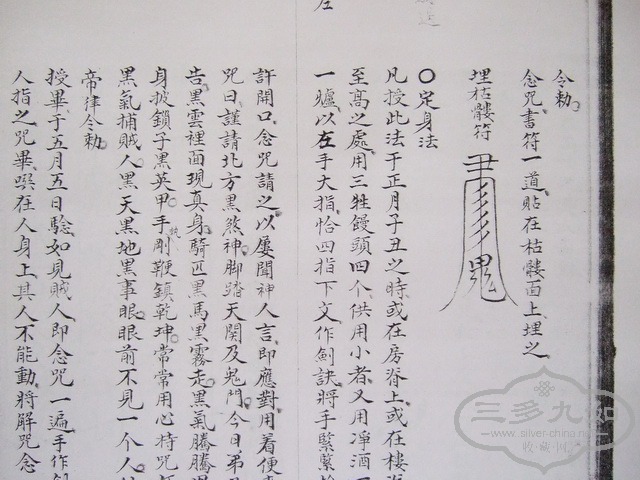 令勅
念咒書符一道貼在枯髏面上埋之
埋枯髏符
鬼
〇定身法
凡授此法于正月子丑之時或在房脊上或在樓
至高之處用三牲饅頭四个供用小者又用渾酒一
一爐以左手大指恰四指下文作劍訣將手緊緊
許開口念咒請之以屢聞神人言即應對用着便
咒曰謹請北方黑煞神脚踏天關及鬼門今日弟
告黑雲裡面現真身騎匹黑馬黑霧走黑氣騰騰
身披鎖子黑英甲手執剛鞭鎮乾坤常常用心持咒
黑氣捕賊人黑天黑地黑事眼眼前不見一个人
帝律令勅
授畢于五月五日驗如見賊人即念咒一遍手作劍
人指之咒畢噀在人身上其人不能動將解咒念
左
三多九如
www.silver-china.net
收·藏·网